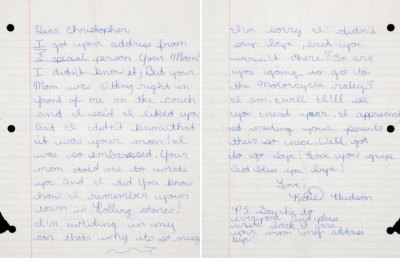 Dear Christopher,
I got your address from
a special person. Your Mom!
I didn't know it, But your
Mom was sitting right in
front of me on the couch
and I said I liked you
And I didn't know that
it was your mom! I
was so embaressed. Your
mom told me to write
you, and I did. You know
how I remember your
town is Rolling stones!
I'm writing in my
car thats why its so messy
I'm sorry I didn't
say bye, but you
weren't there? So are
you going to go to
the Motorcycle raley?
I am, well I'll see
you next year. I appreciat
ed meeting your parents
their so nice. Well got
to go bye! Love you guys
God bless you! bye!
Love,
Katie Hudson
P.S. Say hi to
everyone and please
write back. I gave
your mom my address
bye!